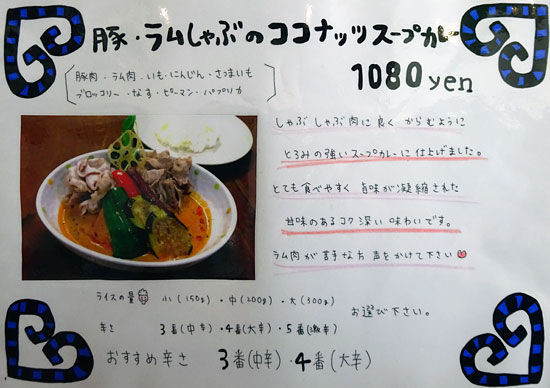 豚・ラムしゃぶのココナッツスープカレー
1080yen
豚肉・ラム肉・いも・にんじん・さつまいも
ブロッコリー・なす・ピーマン・パプリカ
しゃぶしゃぶ肉に良くからむように
とろみの強いスープカレーに仕上げました。
とても食べやすく旨味が凝縮された
甘味のあるコク深い味わいです。
ラム肉が苦手な方声をかけて下さい
ライスの量 小(150g)・中(200g)・大(300g)
お選び下さい。
辛さ 3番(中辛)・4番(大辛)・5番(激辛)
おすすめ辛さ 3番(中辛)・4番(大辛)